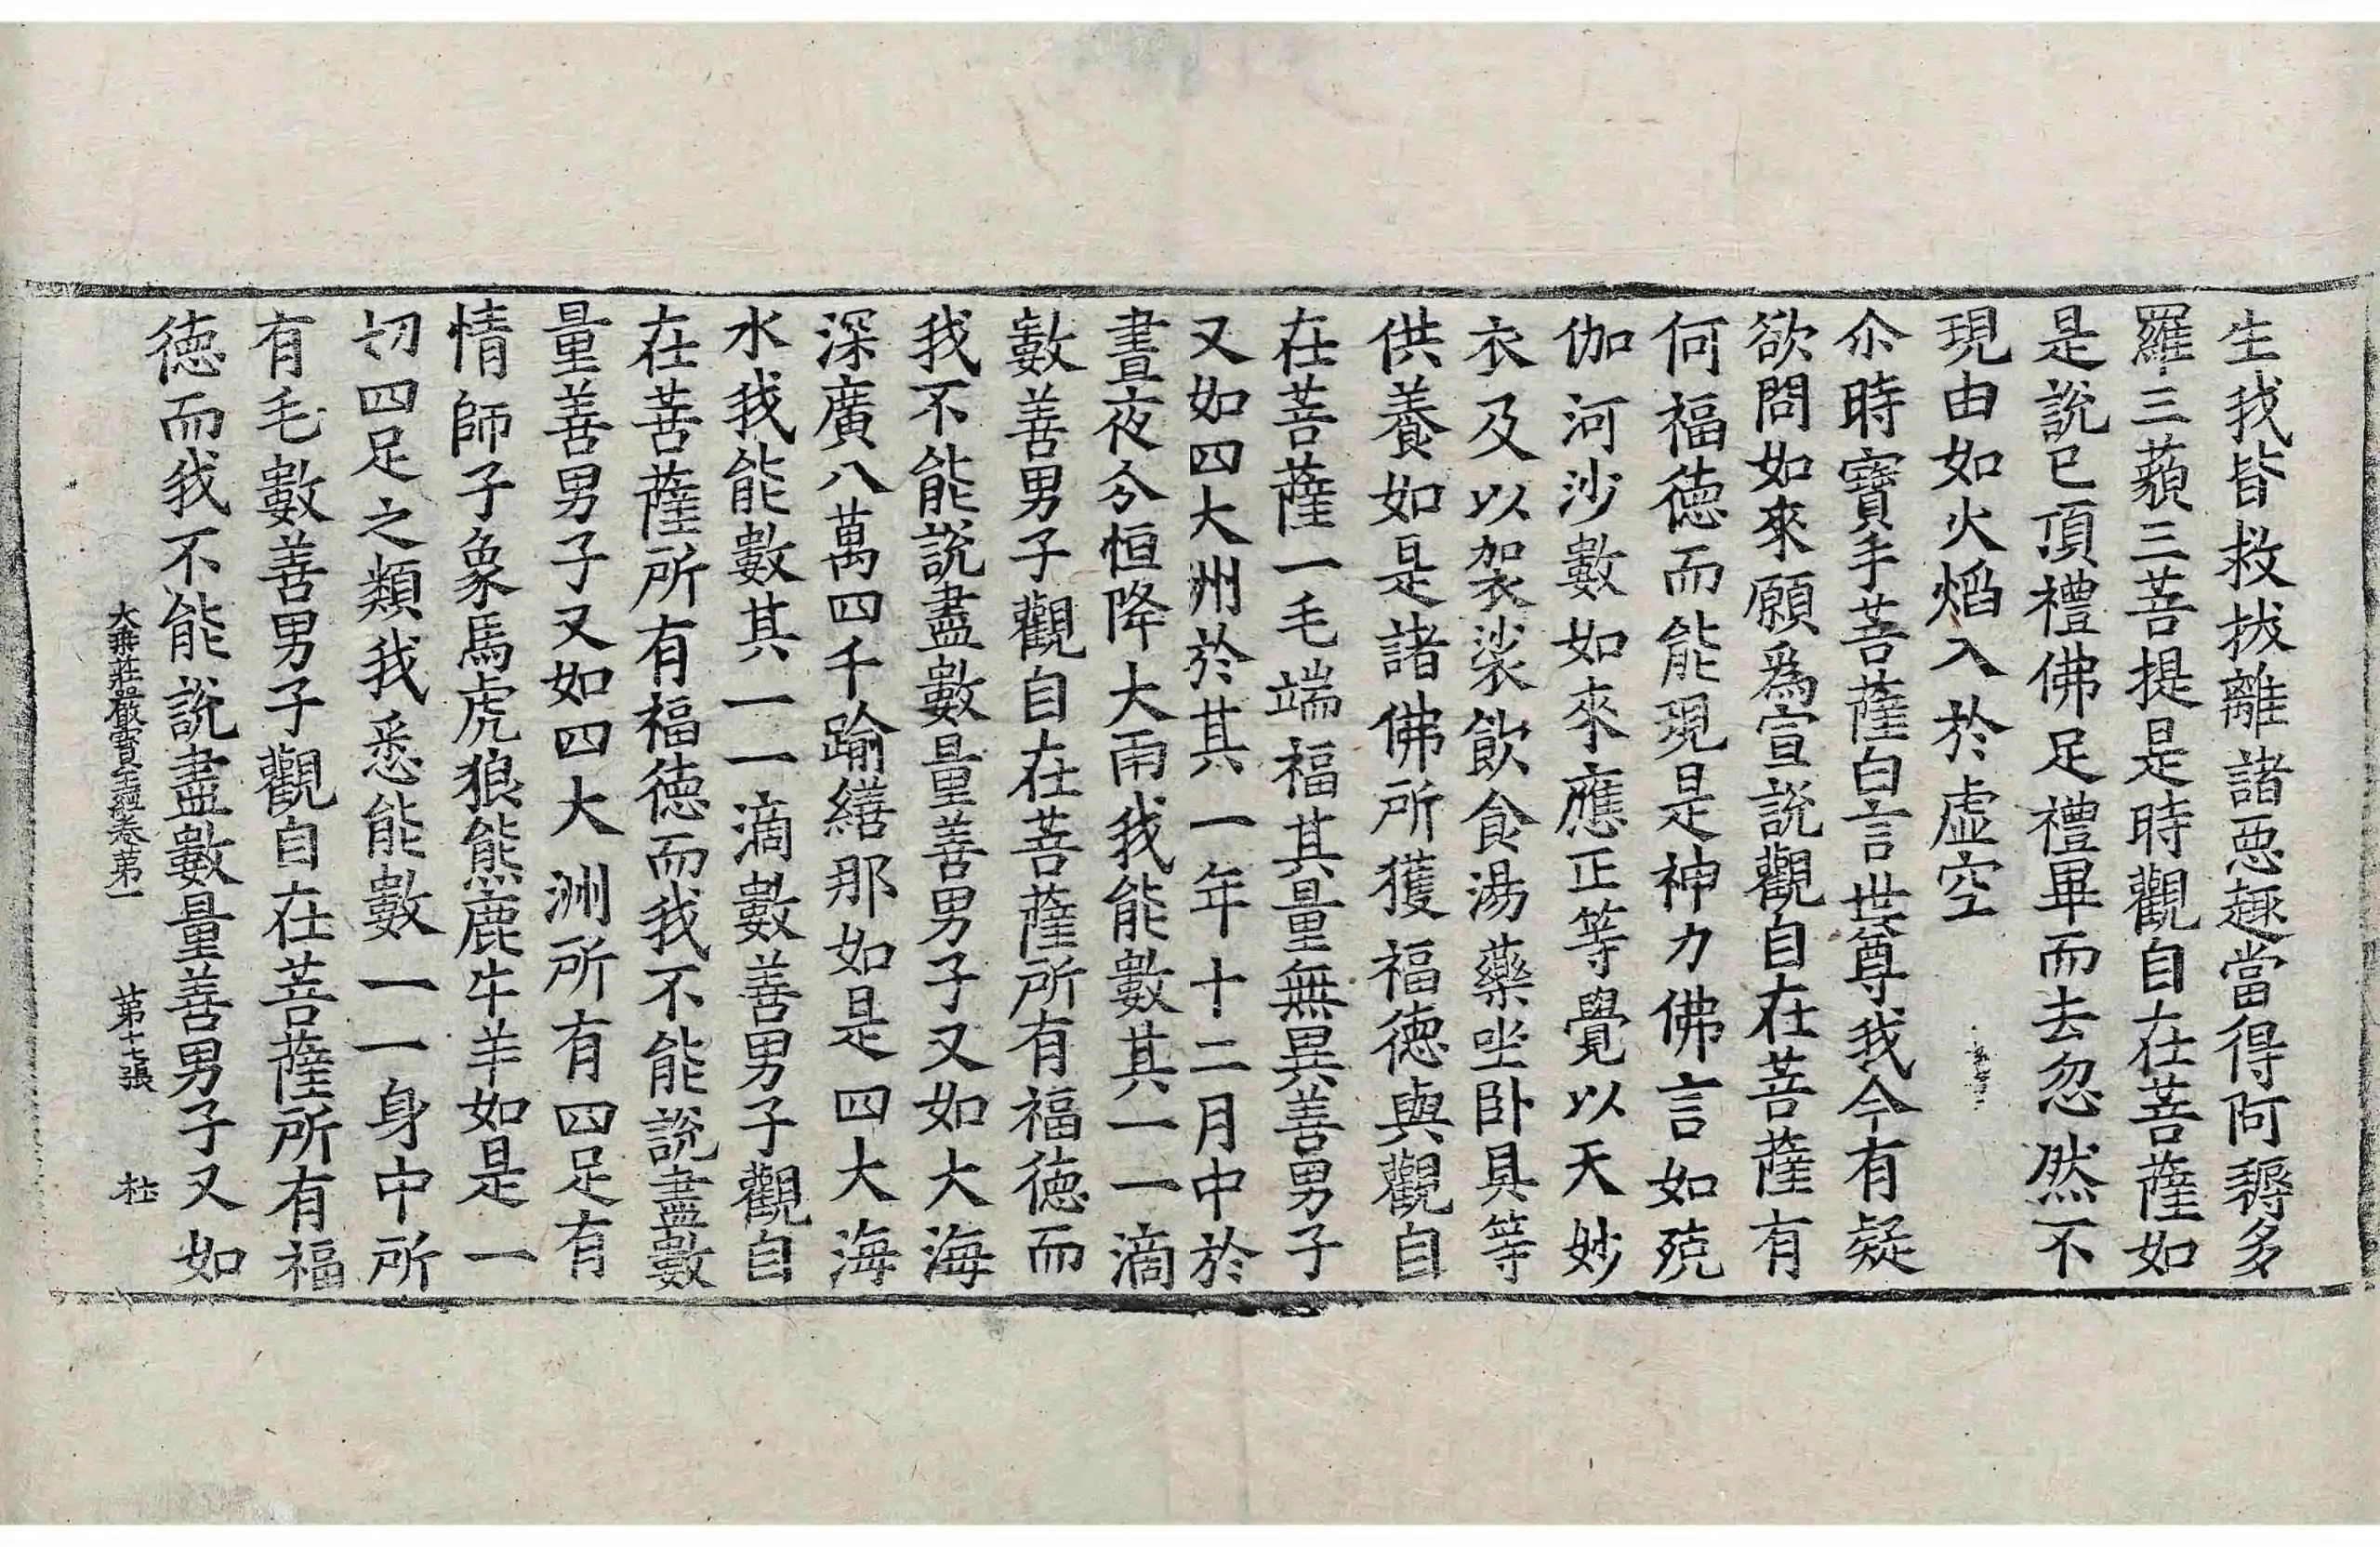 生我皆救拔離諸惡趣當得阿耨多
羅三藐三菩提是時觀自在菩薩如
是說已頂禮佛足禮畢而去忽然不
現由如火焰入於虛空
尒時寶手菩薩白言世尊我今有疑
欲問如來願爲宣說觀自在菩薩有
何福德而能現是神力佛言如殑
伽河沙數如來應正等覺以天妙
衣及以袈裟飲食湯藥坐卧具等
供養如是諸佛所獲福德與觀自
在菩薩一毛端福其量無異善男子
又如四大州於其一年十二月中於
晝夜分恒降大雨我能數其一一滴
數善男子觀自在菩薩所有福德而
我不能說盡數量善男子又如大海
深廣八萬四千踰繕那如是四大海
水我能數其一一滴數善男子觀自
在菩薩所有福德而我不能說盡數
量善男子又如四大洲所有四足有
情師子象馬虎狼熊鹿牛羊如是一
切四足之類我悉能數一一身中所
有毛數善男子觀自在菩薩所有福
德而我不能說盡數量善男子又如
大乘莊嚴寶王經卷第一 第十七張 杜